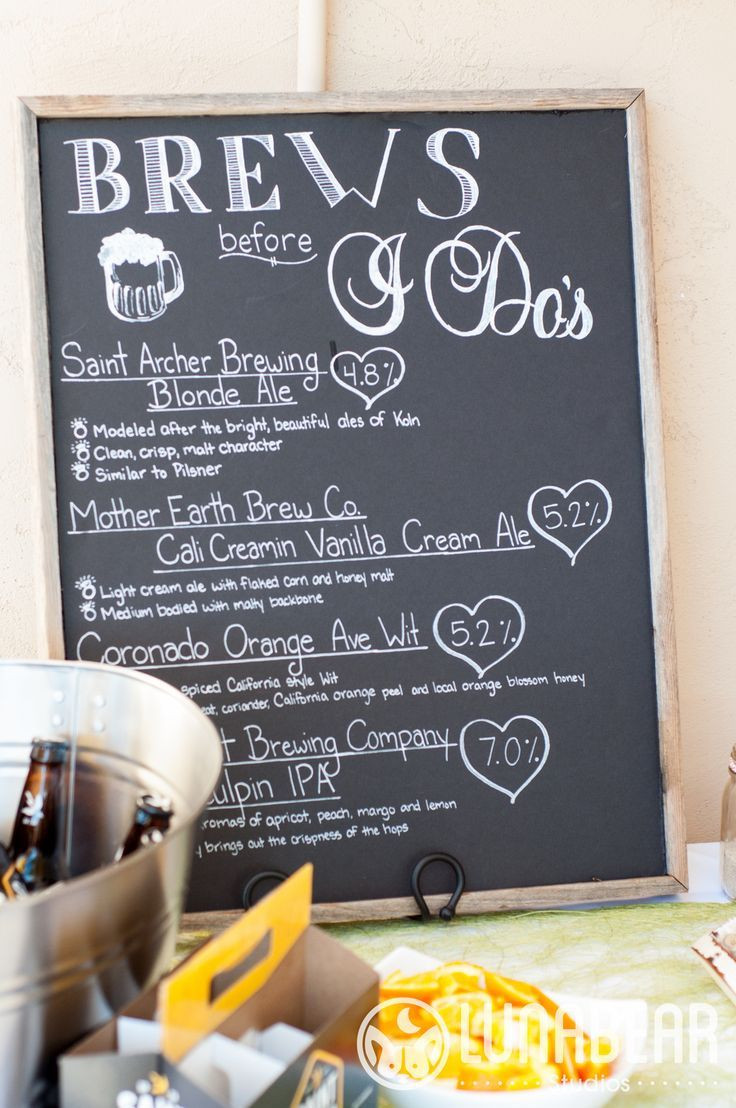 BREWS
before
I Do's
Saint Archer Brewing 4.8%
Blonde Ale
Modeled after the bright, beautiful ales of Koln
Clean, crisp, malt character
Similar to Pilsner
Mother Earth Brew Co. 5.2%
Cali Creamin Vanilla Cream Ale
Light cream ale with flaked corn and honey malt
Medium bodied with malty backbone
Coronado Orange Ave Wit 5.2%
spiced California style Wit
coriander, California orange peel and local orange blossom honey
Brewing Company 7.0%
IPA
of apricot, peach, mango and lemon
brings out the crispness of the hops
LUNABEAR
Studios